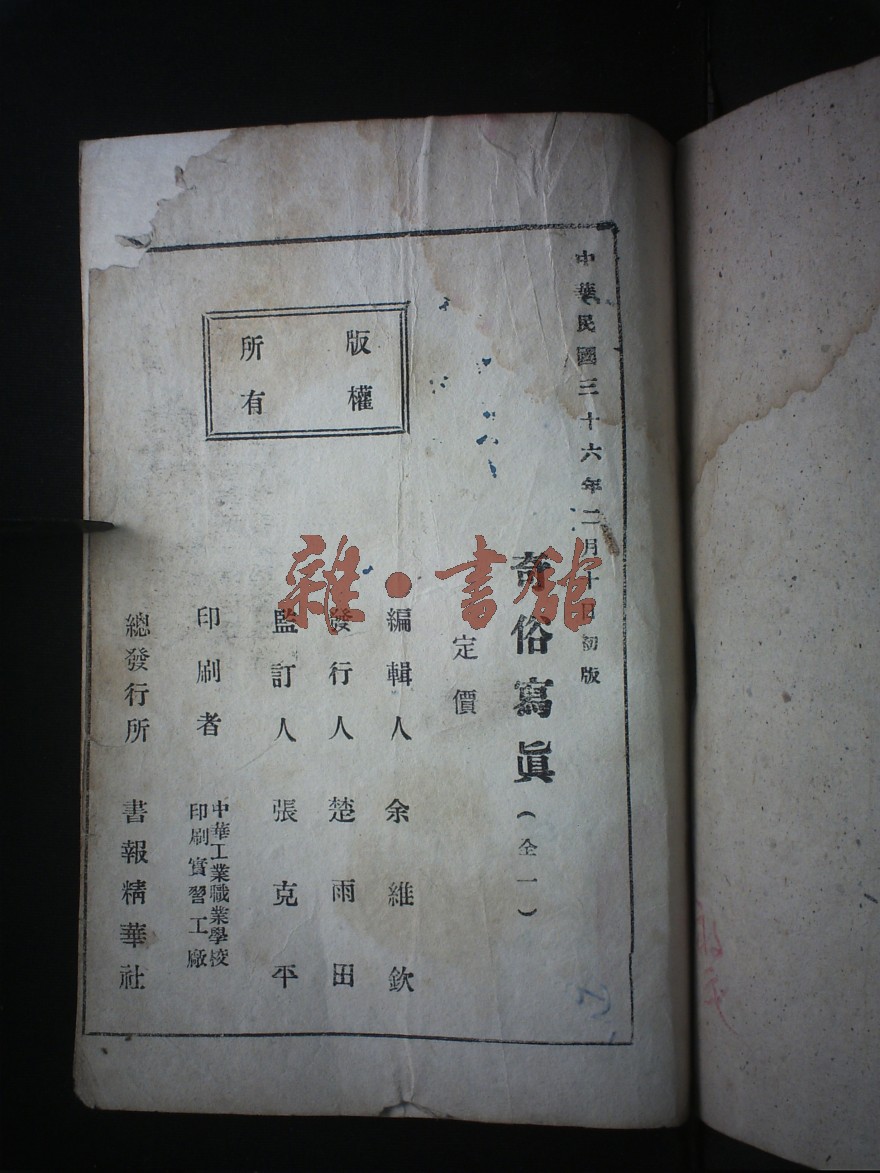 中華民國三十六年二月十日初版
奇俗寫眞(全一)
定價
編輯人 余維欽
發行人 楚雨田
監訂人 張克平
印刷者 中華工業職業學校
印刷實習工廠
總發行所 書報精華社
版權
所有
雜·書館